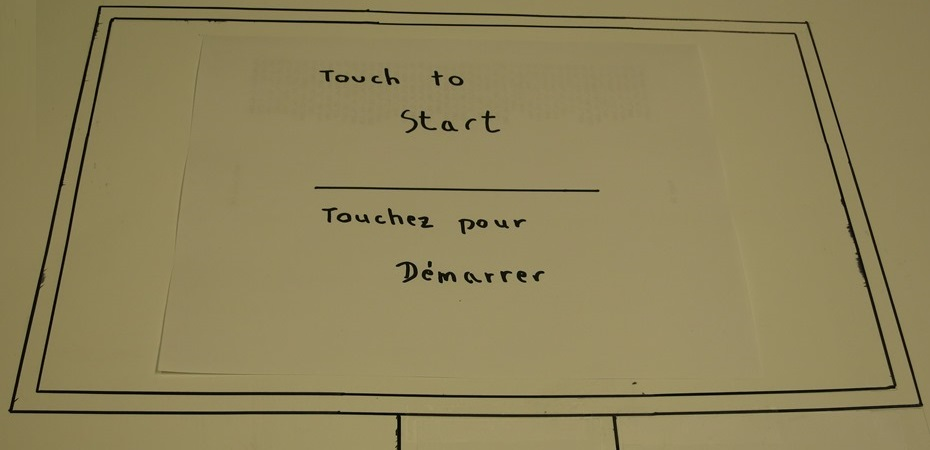 Touch to
Start
Touchez pour
Démarrer